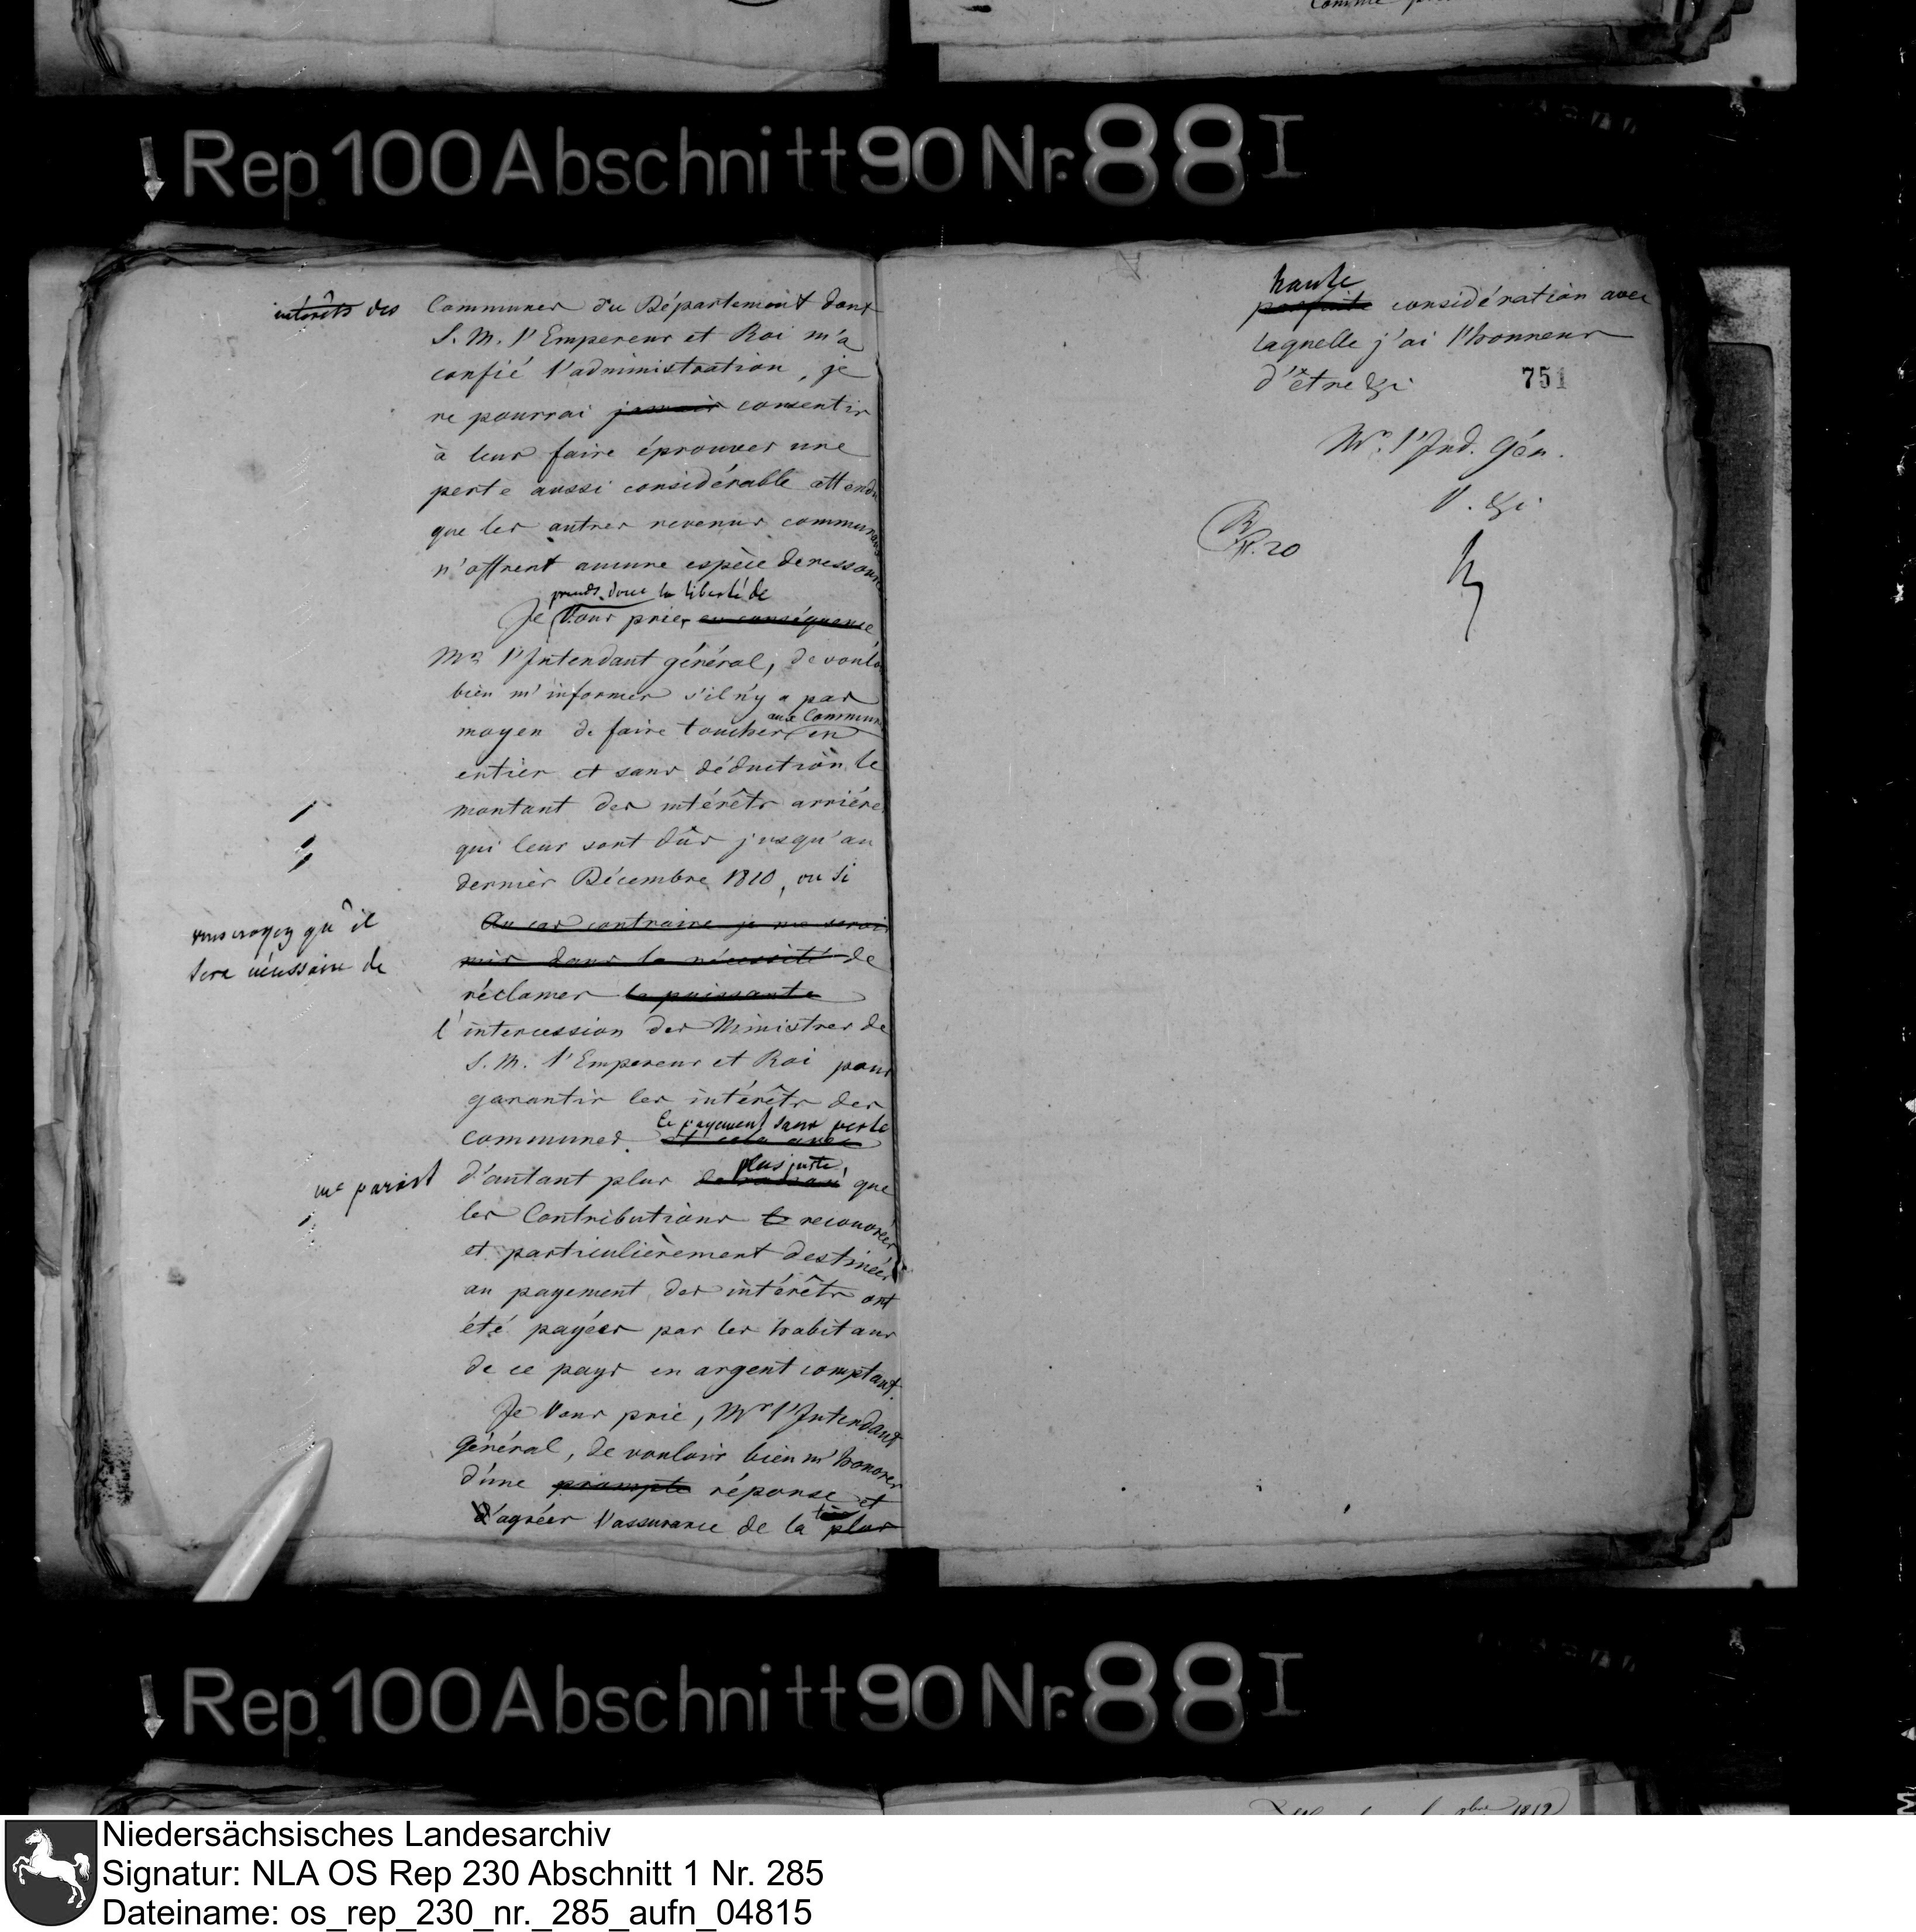 Comme
Rep. 100 Abschnitt 90 Nr. 88 I
intérêts des Communes du Département dont
S. M. l'Empereur et Roi m'a
confié l'administration, je
ne pourrai jamais consentir
à leur faire éprouver une
perte aussi considérable attendu
que les autres revenus communaux
n'offrent aucune espèce de ressource
prends donc la liberté de
Je Vous prier en conséquence,
Mr. l'Intendant général, de voulo
bien m'informer s'il n'y a pas
aux Commun
moyen de faire toucher en
entier et sans déduction le
montant des intérêts arriéré
qui leur sont dûs jusqu'au
dernier Décembre 1810, ou si
Au cas contraire je me serai
vous croyez qu'il
mis dans la nécessité de
sera nécessaire de
réclamer la puissante
l'intercession des Ministres de
S. M. l'Empereur et Roi pour
garantir les intérêts des
le payement sans perte
communes. et cela avec
plus juste,
me parait d'autant plus de raison que
les Contributions le recouvrées
et particulièrement destinées
au payement des intérêts ont
été payées par les habitans
de ce pays en argent comptant.
Je Vous prie, Mr l'Intendant
Général, de vouloir bien m'honorer
d'une prompte réponse et
très
d'agréer l'assurance de la plus
haute
parfaite considération avec
laquelle j'ai l'honneur
d'être &c
751
Mr. l'Ind. Gén.
V. &c
R. 20
Rep. 100 Abschnitt 90 Nr. 88 I
bre 1812
Niedersächsisches Landesarchiv
Signatur: NLA OS Rep 230 Abschnitt 1 Nr. 285
Dateiname: os_rep_230_nr._285_aufn_04815